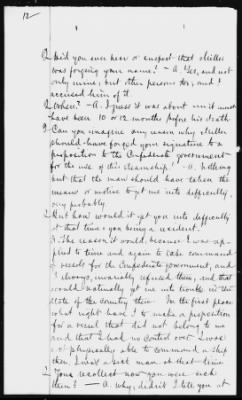 12—
Q. Did you ever hear or suspect that Miller
was forging your name? — A. Yes, and not
only mine, but other persons too; and I
accused him of it.
Q. When? — A. I guess it was about it must
have been 10 or 12 months before his death
Q. Can you imagine any reason why Miller
should have forged your signature to a
proposition to the Confederate government
for the use of this steamship? — A. Nothing
but that the man should have taken the
means or motive to get me into difficulty,
very probably.
Q. But how would it get you into difficulty
at that time, you being a resident.
A. The reason it would, because I was ap-
plied to time and again to take command
of vessels for the Confederate government, and
I always, invariably refused them, and that
would naturally get me into trouble in the
state of the country then. In the first place
what right have I to make a proposition
for a vessel that did not belong to me
and that I had no control over. I was
not physically able to command a ship
then, I was a sick man at that time
Q. You recollect now you were sick
then? — A. Why, didn't I tell you at